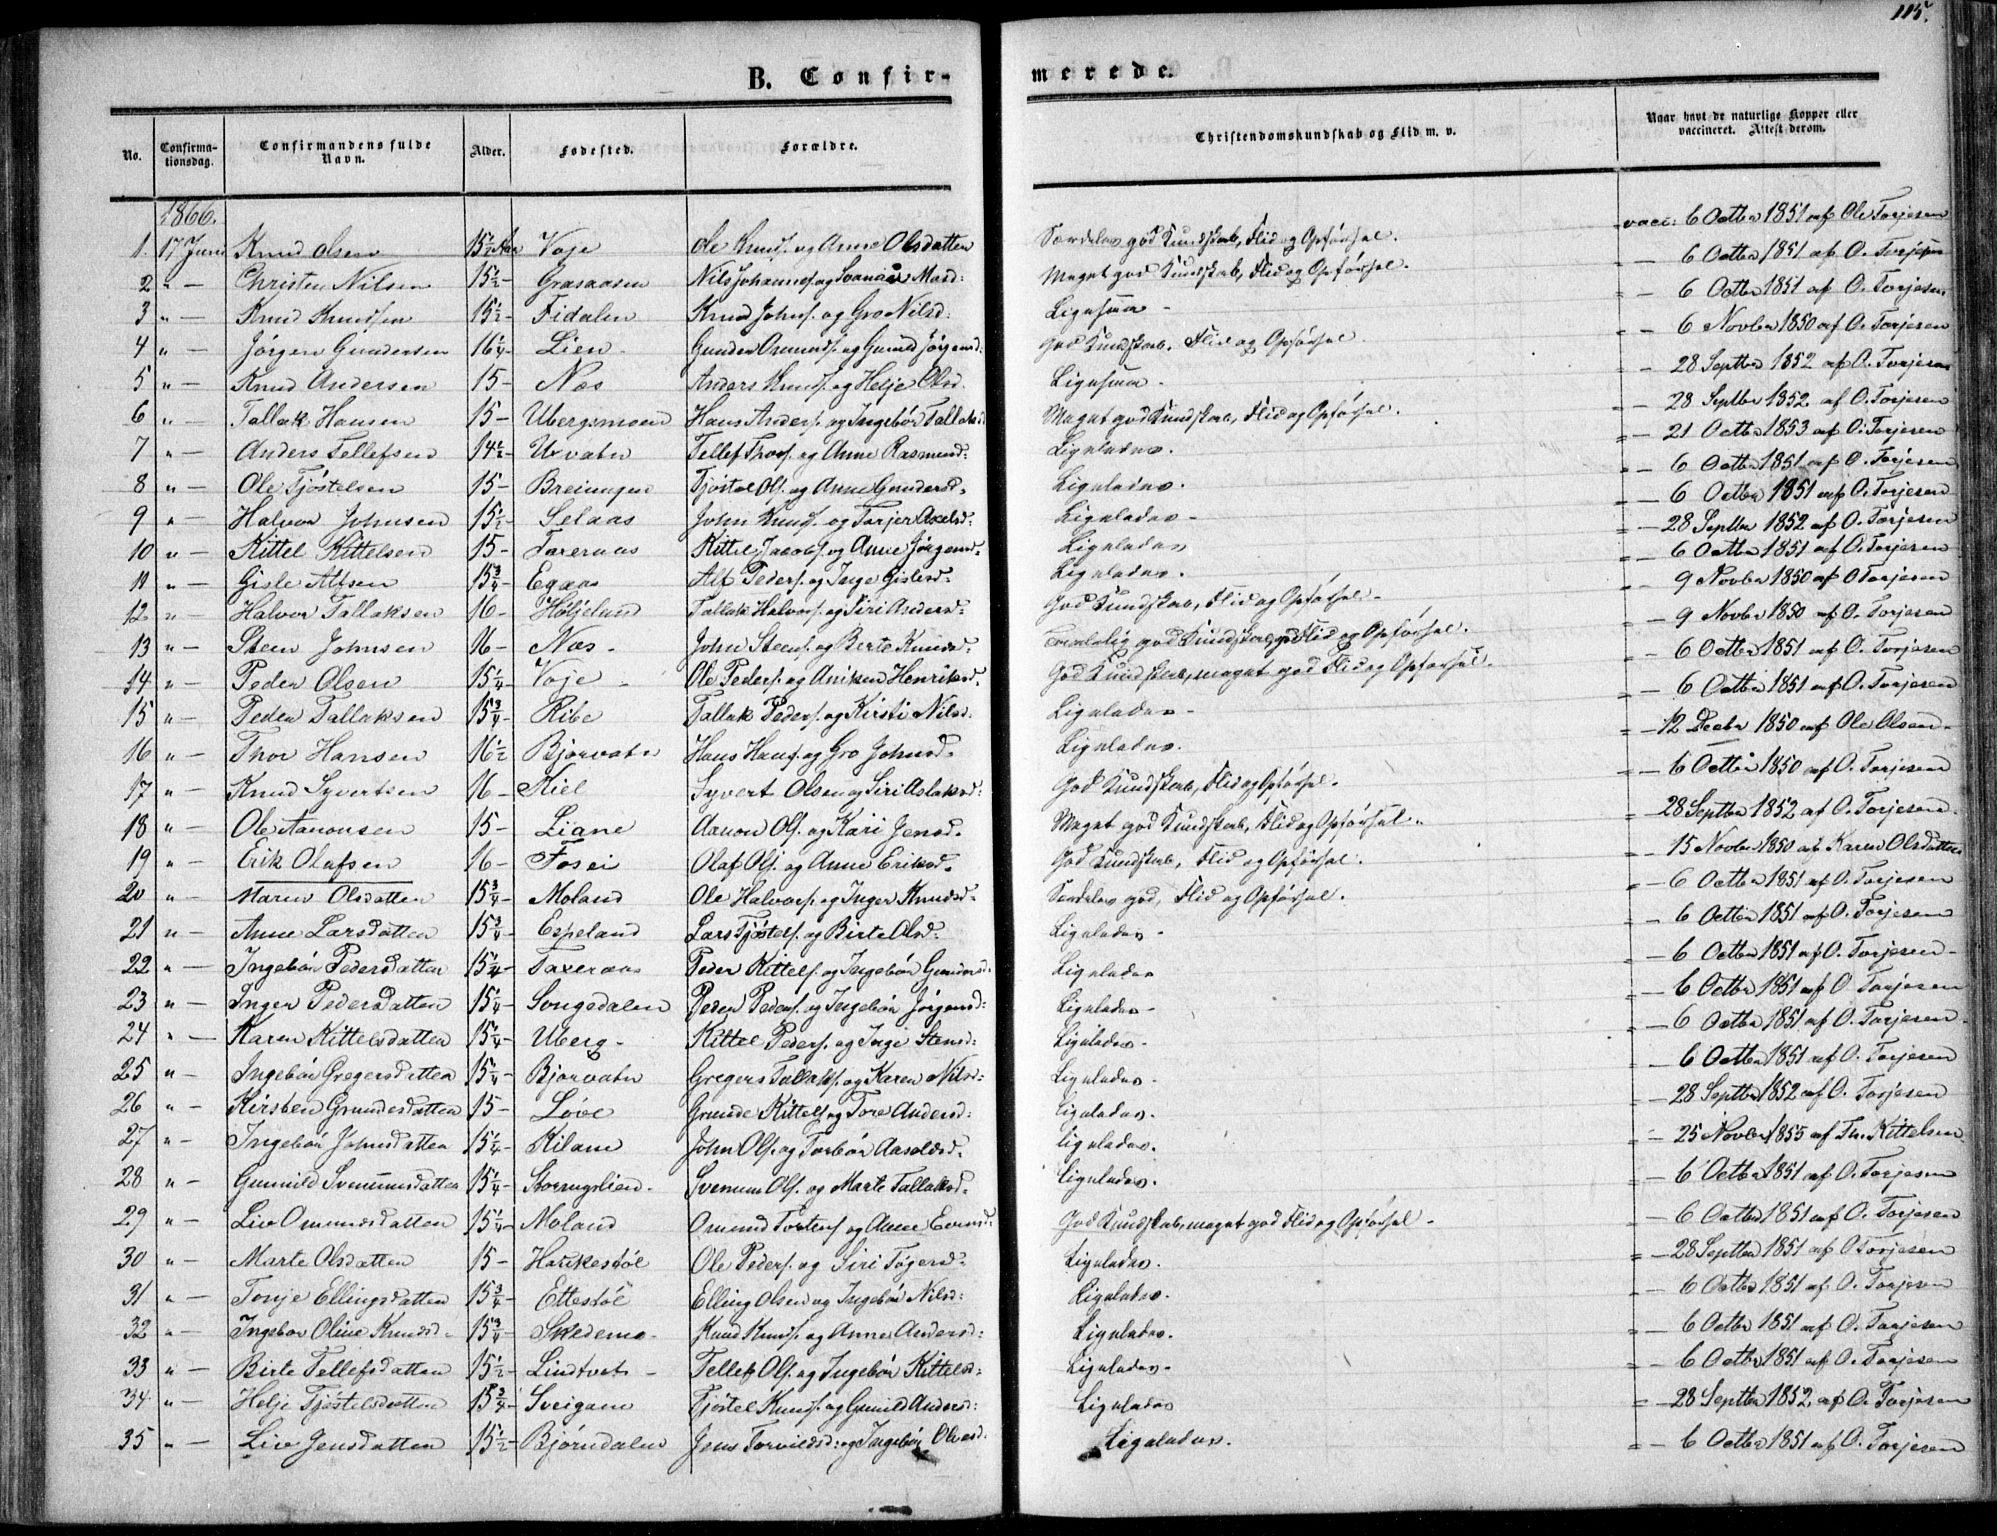 115.
B. Confir-
merede.
No.
Confirma-
tionsdag.
Confirmandens fulde
Navn.
Alder.
Fødested.
Forældre.
Christendomskundskab og Flid m. v.
Naar havt de naturlige Kopper eller
vaccineret. Attest derom.
1866.
1. 17 Juni Knud Olsen 15½ Aar Voje Ole Knuds. og Anne Olsdatter Særdeles god Kundskab, Flid og Opførsel. vacc: 6 Octbr 1851 af Ole Torjesen
2 " — Christen Nilsen 15½ - Graaaasen Nils Johannes. og Mard: Meget god Kundskab, Flid og Opførsel. = — 6 Octbr 1851 af O. Torjesen
3 " — Knud Knudsen 15½ - Fidalen Knud Johns. og Gro Nilsd: Ligesaa - = — 6 Octbr 1851 af O. Torjesen
4 " — Jørgen Gundersen 16¼ - Lien - Gunder Omunds. og Gunild Jørgensd: God Kundskab. Flid og Opførsel. = — 6 Novbr 1850 af O. Torjesen
5 " — Knud Andersen 15 - Næs Anders Knuds. og Helje Olsd. Ligesaa - = — 28 Septbr 1852 af O. Torjesen
6 " — Tallak Hansen 15 - Ubergsmoen Hans Anders. og Ingebør Tallaksd Meget god Kundskab, Flid og Opførsel. = — 28 Septbr 1852. af O. Torjesen
7 " — Anders Tellefsen 14½ - Urvatn Tellef Thors. og Anne Rasmusd: Ligeledes. = — 21 Octbr 1853 af O. Torjesen
8 " — Ole Tjøstelsen 15 - Breiungen Tjøstel Ols. og Anne Gundersd. Ligeledes. = — 6 Octbr 1851 af O. Torjesen
9 " — Halvor Johnsen 15½ - Selaas John Knuds. og Torjer Axelsd: Ligeledes - = — 6 Octbr 1851 af O. Torjesen
10 " — Kittel Kittelsen 15 - Faxeraas Kittel Jacobs. og Anne Jørgensd. Ligeledes = — 28 Septbr 1852 af O. Torjesen
11 " — Gisle Alfsen 15¾ - Egaas Alf Peders. og Inge Gislesd: Ligeledes. = — 6 Octbr 1851 af O. Torjesen
12 " — Halvor Tallaksen 16 - Høljeland Tallak Halvors. og Siri Andersd: God Kundskab, Flid og Opførsel - = — 9 Novbr 1850 af O Torjesen
13 " — Steen Johnsen 16 - Næs - John Steens. og Berte Knudsd. Temmelig god Kundskab, god Flid og Opførsel. = — 9 Novbr 1850 af O. Torjesen
14 " — Peder Olsen 15¼ - Voje - Ole Peders. og Aniken Henriksd. God Kundskab, meget god Flid og Opførsel. = — 6 Octbr 1851 af O. Torjesen
15 " — Peder Tallaksen 15¾ - Ribe Tallak Peders. og Kirsti Nilsd: Ligeledes - = — 6 Octbr 1851 af O. Torjesen
16 " — Thor Hansen 16½ Bjorvatn Hans Hans. og Gro Johnsd. Ligeledes. = — 12 Decbr 1850 af Ole Olsen -
17 " — Knud Syvertsen 16 - Kiel Syvert Olsen og Siri Aslaksd: God Kundskab, Flid og Opførsel. = — 6 Octbr 1850 af O. Torjesen
18 " — Ole Aanonsen 15 - Liane Aanon Ols. og Kari Jensd. Meget god Kundskab, Flid og Opførsel. = — 28 Septbr 1852 af O. Torjesen
19 " — Erik Olafsen 16 - Fosei Olaf Ols. og Anne Eriksd. God Kundskab, Flid og Opførsel. = — 15 Novbr 1850 af Karen Olsdatter
20 " — Maren Olsdatter 15¾ - Moland Ole Halvors. og Inger Knudsd. Særdeles god, Flid og Opførsel. = — 6 Octbr 1851 af O. Torjesen
21 " — Anne Larsdatter 15¾ - Espeland Lars Tjøstels. og Birte Olsd. Ligeledes - = — 6 Octbr 1851 af O. Torjesen
22 " — Ingebør Pedersdatter 15¼ - Faxeraas Peder Kittels. og Ingebør Gundersd: Ligeledes = — 6 Octbr 1851 af O. Torjesen -
23 " — Inger Pedersdatter 15¼ - Songedalen Peder Peders. og Ingebør Jørgensd: Ligeledes - = — 6 Octbr 1851 af O Torjesen
24 " — Karen Kittelsdatter 15¼ - Uberg - Kittel Peders. og Inge Stensd: Ligeledes - = — 6 Octbr 1851 af O. Torjesen -
25 " — Ingebør Gregersdatter 15¼ - Bjorvatn Gregers Tallaks. og Karen Nilsd: Ligeledes. = — 6 Octbr 1851 af O. Torjesen
26 " — Kirsten Grundesdatter 15 - Løve Grunde Kittels. og Tore Andersd: Ligeledes. = — 28 Septbr 1852 af O. Torjesen
27 " — Ingebør Johnsdatter 15¼ - Kilane John Ols. og Torbør Aasoldsd. Ligeledes. = — 25 Novbr 1855 af Th. Kittelsen
28 " — Gunnild Svenumsdatter 15¼ - Svenum Ols. og Marte Tallaksd. Ligeledes. = — 6 Octbr 1851 af O. Torjesen
29 " — Liv Omundsdatter 15¼ - Moland Omund Tortens. og Anne Evensd: God Kundskab, meget god Flid og Opførsel - = — 6 Octbr 1851 af O. Torjesen
30 " — Marte Olsdatter 15 - Haukestøl Ole Peders. og Siri Tøgersd: Ligeledes. = — 28 Septbr 1851 af O Torjesen
31 " — Tonje Ellingsdatter 15¾ - Ettestøl Elling Olsen og Ingebør Nilsd: Ligeledes. = — 6 Octbr 1851 af O. Torjesen
32 " — Ingebor Oline Knudsd - 15¾ - Skedemo - Knud Knuds. og Anne Andersd: Ligeledes. = — 6 Octbr 1851 af O. Torjesen
33 " — Birte Tellefsdatter 15½ - Lindtvet - Tellef Ols. og Ingebør Kittelsd: Ligeledes - = — 6 Octbr 1851 af O. Torjesen
34 " — Helje Tjøstelsdatter 15¾ - Sveigane Tjøstel Knuds. og Gunild Andersd: Ligeledes = — 28 Septbr 1852 af O. Torjesen
35 " — Liv Jensdatter 15½ - Bjørndalen Jens Torvildsd: og Ingebør Olvesd: Ligeledes. = — 6 Octbr 1851 af O. Torjesen